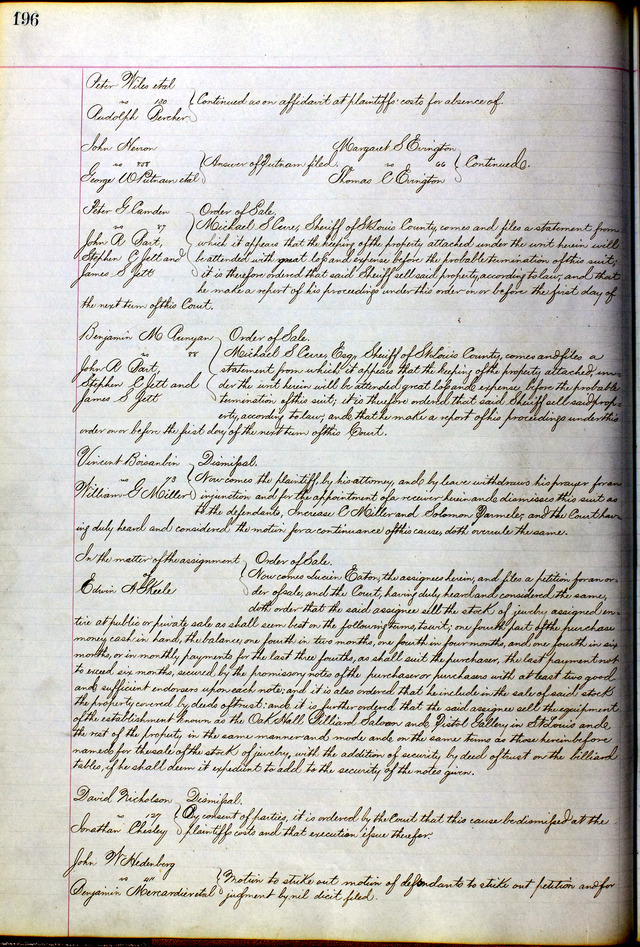 196
Peter Wiles etal
vs 130 Continued as on affidavit at plaintiffs costs for absence of.
Rudolph Bercher
John Herron
vs Answer of Putnam filed.
George W Putnam etal
Margaret S Evington
vs 66 Continued.
Thomas C Evington
Peter G. Camden Order of Sale.
vs 87 Michael S Cerre, Sheriff of St Louis County, comes and files a statement from
John A Dart, which it appears that the keeping of the property attached under the writ herein will
Stephen C Jett and be attended with great loss and expense before the probable termination of this suit;
James S Jett it is therefore ordered that said Sheriff sell said property, according to law, and that
he make a report of his proceedings under this order on or before the first day of
the next term of this Court.
Benjamin M Runyan Order of Sale.
vs 88 Michael S Cerre, Esq, Sheriff of St Louis County, comes and files a
John A Dart, statement from which it appears that the keeping of the property attached un-
Stephen C Jett and der the writ herein will be attended great loss and expense, before the probable
James S Jett termination of this suit; it is therefore ordered that said Sheriff sell said prop-
erty, according to law, and that he make a report of his proceedings under this
order on or before the first day of the next term of this Court.
Vincent Boisaubin Dismissal.
vs 73 Now comes the plaintiff, by his attorney, and by leave withdraws his prayer for an
William G Miller injunction and for the appointment of a receiver herein and dismisses this suit as
to the defendants, Increase C Miller and Solomon Parmele, and the Court hav-
ing duly heard and considered the motion for a continuance of this cause, doth overrule the same.
In the matter of the assignment Order of Sale.
of Now comes Lucien Eaton, the assignee herein, and files a petition for an or-
Edwin A Skeele der of sale, and the Court, having duly heard and considered the same,
doth order that the said assignee sell the stock of jewelry assigned en-
tire at public or private sale as shall seem best on the following terms, to wit; one fourth part of the purchase
money cash in hand, the balance, one fourth in two months, one fourth in four months, and one fourth in six
months, or in monthly payments for the last three fourths, as shall suit the purchaser, the last payment not
to exceed six months, secured by the promissory notes of the purchaser or purchasers with at least two good
and sufficient endorsers upon each note; and it is also ordered that he include in the sale of said stock
the property covered by deeds of trust: and it is further ordered that the said assignee sell the equipment
of the establishment known as the Oak Hall Billiard Saloon and Pistol Gallery, in St Louis and
the rest of the property in the same manner and mode and on the same terms as those herein before
named for the sale of the stock of jewelry, with the addition of security by deed of trust on the billiard
tables, if he shall deem it expedient to add to the security of the notes given.
David Nicholson Dismissal.
vs 127 By consent of parties, it is ordered by the Court that this cause be dismissed at the
Jonathan Chesley plaintiffs costs and that execution issue therefor.
John W Hedenberg
vs Motion to strike out motion of defendants to strike out petition and for
Benjamin Mercardier etal judgment by nil dicit filed.